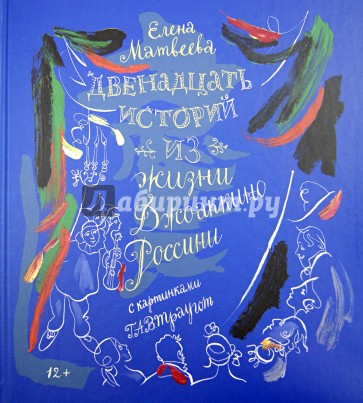 Елена
Матвеева
ДВЕНАДЦАТЬ
ИСТОРИЙ
ИЗ
ЖИЗНИ
Джоаккино
Россини
с картинками
Г.А.В.Траугот
Лабиринт.ру
12+